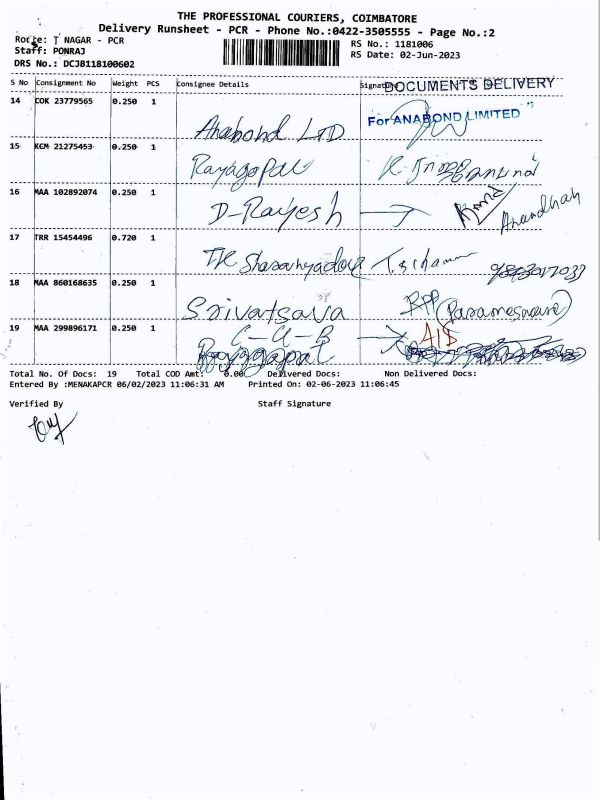 THE PROFESSIONAL COURIERS, COIMBATORE
Delivery Runsheet - PCR - Phone No.:0422-3505555 - Page No.:2
Route: T NAGAR - PCR
RS No.: 1181006
Staff: PONRAJ
RS Date: 02-Jun-2023
DRS No.: DCJB118100602
S No Consignment No Weight PCS Consignee Details Signature
DOCUMENTS DELIVERY
14 COK 23779565 0.250 1
For ANABOND LIMITED
Anabond LTD
15 KCM 21275453 0.250 1
Rayagopal
16 MAA 102892074 0.250 1
D-Rayesh
Anandhan
17 TRR 15454496 0.720 1
18 MAA 860168635 0.250 1
Srivatsava
(Parameswari)
19 MAA 299896171 0.250 1
C-U-B
A/S
Total No. Of Docs: 19 Total COD Amt: 0.00 Delivered Docs: Non Delivered Docs:
Entered By :MENAKAPCR 06/02/2023 11:06:31 AM Printed On: 02-06-2023 11:06:45
Verified By Staff Signature